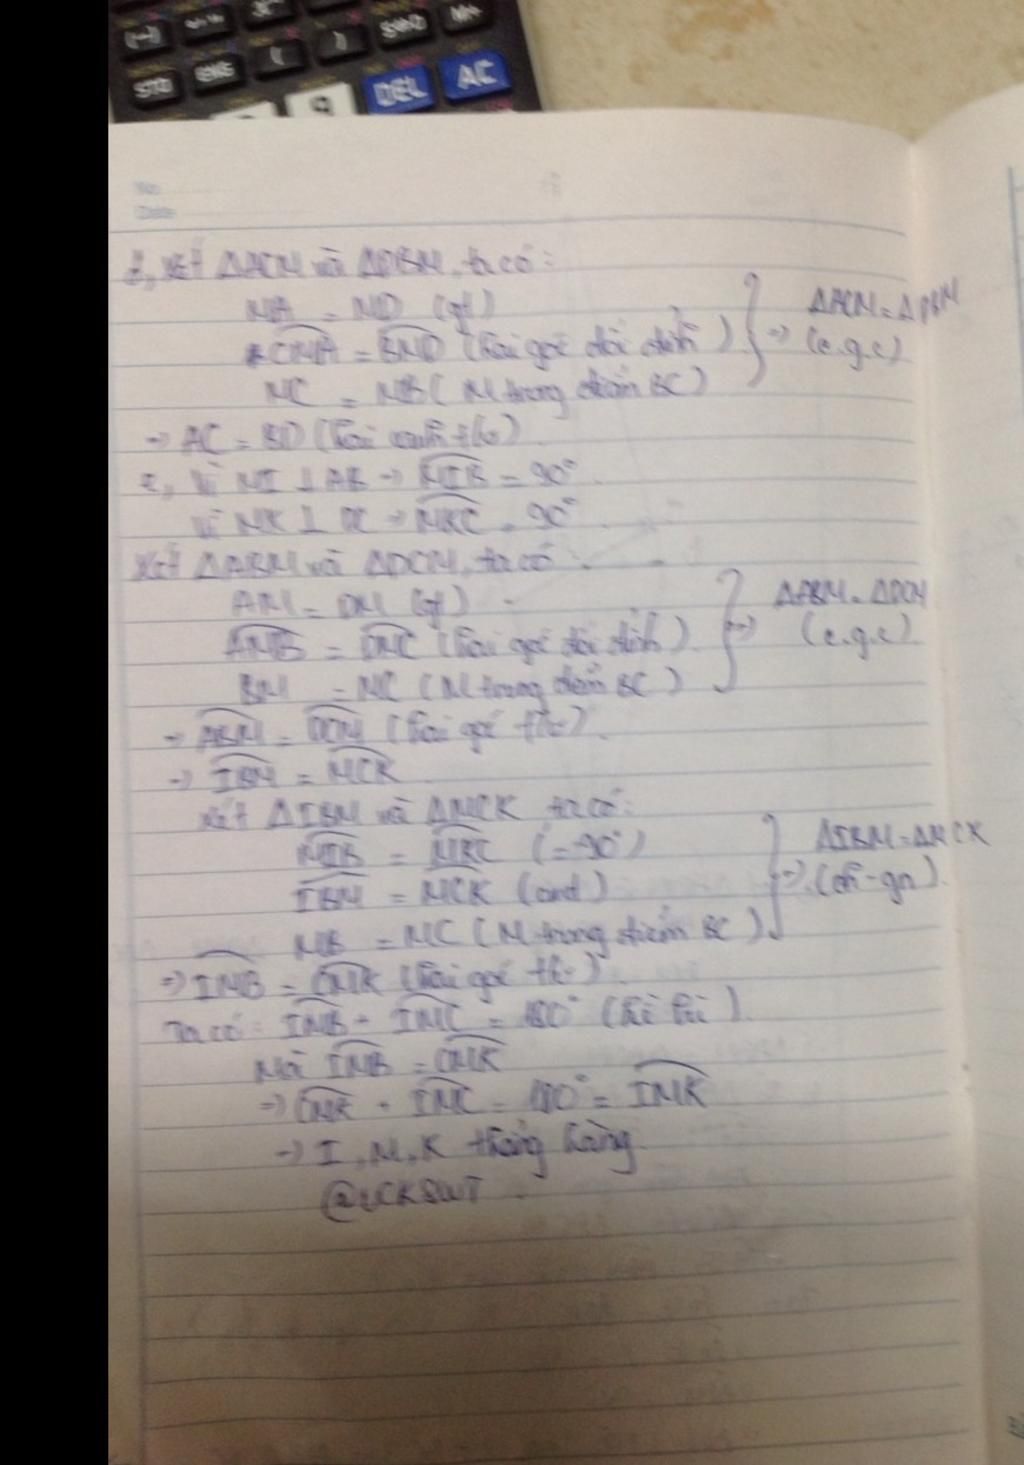 (-)
STO
ENG
(
)
S⇔D
M+
9
DEL
AC
No
Date
b, Xét ΔACM và ΔDBM, ta có:
MA = MD (gt)
CMA = BMD (hai góc đối đỉnh)
MC = MB (M trung điểm BC)
=> ΔACM = ΔDBM
(c.g.c)
=> AC = BD (hai cạnh t/ư)
c, Vì MI ⊥ AB => MIB = 90°.
Vì MK ⊥ DC => MKC = 90°.
Xét ΔABM và ΔDCM, ta có:
AM = DM (gt)
AMB = DMC (hai góc đối đỉnh)
BM = MC (M trung điểm BC)
=> ΔABM = ΔDCM
(c.g.c)
=> ABM = DCM (hai góc t/ư).
=> IBM = MCK
Xét ΔIBM và ΔMCK ta có:
MIB = MKC (=90°)
IBM = MCK (cmt)
MB = MC (M trung điểm BC)
=> ΔIBM = ΔMCK
(ch-gn)
=> IMB = CMK (hai góc t/ư)
Ta có: IMB + IMC = 180° (kề bù)
Mà IMB = CMK
=> CMK + IMC = 180° = IMK
=> I, M, K thẳng hàng